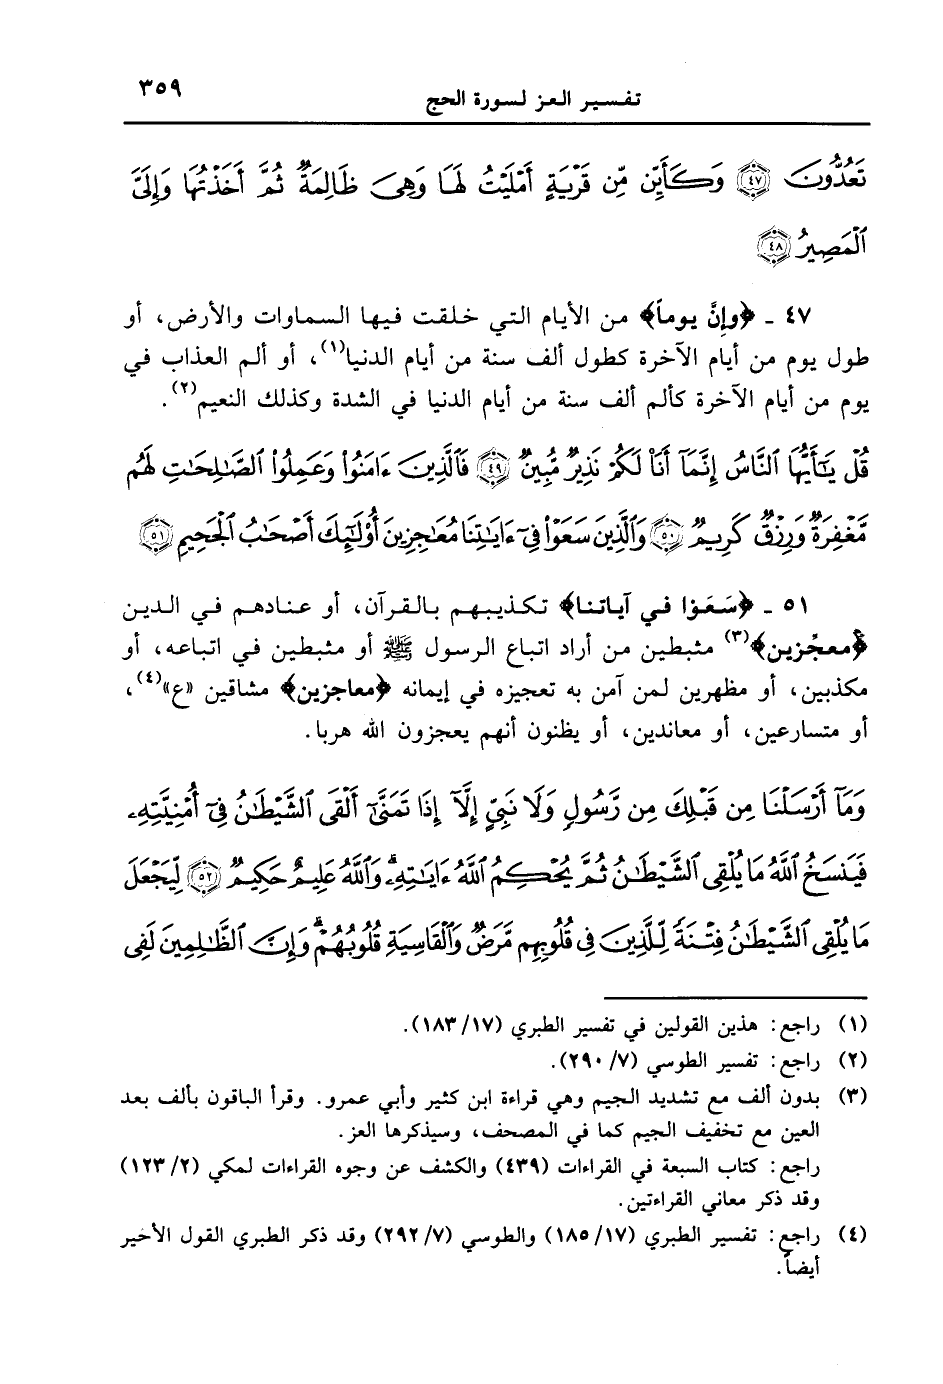 تفسير العز لسورة الحج ٣٥٩
تَعُدُّونَ ﴿٤٧﴾ وَكَأَيِّن مِّن قَرْيَةٍ أَمْلَيْتُ لَهَا وَهِيَ ظَالِمَةٌ ثُمَّ أَخَذْتُهَا وَإِلَيَّ
ٱلْمَصِيرُ ﴿٤٨﴾
٤٧ ـ ﴿وإنَّ يوماً﴾ من الأيام التي خلقت فيها السماوات والأرض، أو
طول يوم من أيام الآخرة كطول ألف سنة من أيام الدنيا(١)، أو ألم العذاب في
يوم من أيام الآخرة كألم ألف سنة من أيام الدنيا في الشدة وكذلك النعيم(٢).
قُلْ يَٰٓأَيُّهَا ٱلنَّاسُ إِنَّمَآ أَنَا۠ لَكُمْ نَذِيرٌ مُّبِينٌ ﴿٤٩﴾ فَٱلَّذِينَ ءَامَنُوا۟ وَعَمِلُوا۟ ٱلصَّٰلِحَٰتِ لَهُم
مَّغْفِرَةٌ وَرِزْقٌ كَرِيمٌ ﴿٥٠﴾ وَٱلَّذِينَ سَعَوْا۟ فِىٓ ءَايَٰتِنَا مُعَٰجِزِينَ أُو۟لَٰٓئِكَ أَصْحَٰبُ ٱلْجَحِيمِ ﴿٥١﴾
٥١ ـ ﴿سَعَوْا في آياتنا﴾ تكذيبهم بالقرآن، أو عنادهم في الدين
﴿معجّزين﴾(٣) مثبطين من أراد اتباع الرسول ﷺ أو مثبطين في اتباعه، أو
مكذبين، أو مظهرين لمن آمن به تعجيزه في إيمانه ﴿معاجزين﴾ مشاقين «ع»(٤)،
أو متسارعين، أو معاندين، أو يظنون أنهم يعجزون الله هربا.
وَمَآ أَرْسَلْنَا مِن قَبْلِكَ مِن رَّسُولٍ وَلَا نَبِىٍّ إِلَّآ إِذَا تَمَنَّىٰٓ أَلْقَى ٱلشَّيْطَٰنُ فِىٓ أُمْنِيَّتِهِۦ
فَيَنسَخُ ٱللَّهُ مَا يُلْقِى ٱلشَّيْطَٰنُ ثُمَّ يُحْكِمُ ٱللَّهُ ءَايَٰتِهِۦ ۗ وَٱللَّهُ عَلِيمٌ حَكِيمٌ ﴿٥٢﴾ لِّيَجْعَلَ
مَا يُلْقِى ٱلشَّيْطَٰنُ فِتْنَةً لِّلَّذِينَ فِى قُلُوبِهِم مَّرَضٌ وَٱلْقَاسِيَةِ قُلُوبُهُمْ ۗ وَإِنَّ ٱلظَّٰلِمِينَ لَفِى
(١) راجع: هذين القولين في تفسير الطبري (١٨٣/١٧).
(٢) راجع: تفسير الطوسي (٢٩٠/٧).
(٣) بدون ألف مع تشديد الجيم وهي قراءة ابن كثير وأبي عمرو. وقرأ الباقون بألف بعد
العين مع تخفيف الجيم كما في المصحف، وسيذكرها العز.
راجع: كتاب السبعة في القراءات (٤٣٩) والكشف عن وجوه القراءات لمكي (١٢٣/٢)
وقد ذكر معاني القراءتين.
(٤) راجع: تفسير الطبري (١٨٥/١٧) والطوسي (٢٩٢/٧) وقد ذكر الطبري القول الأخير
أيضاً.